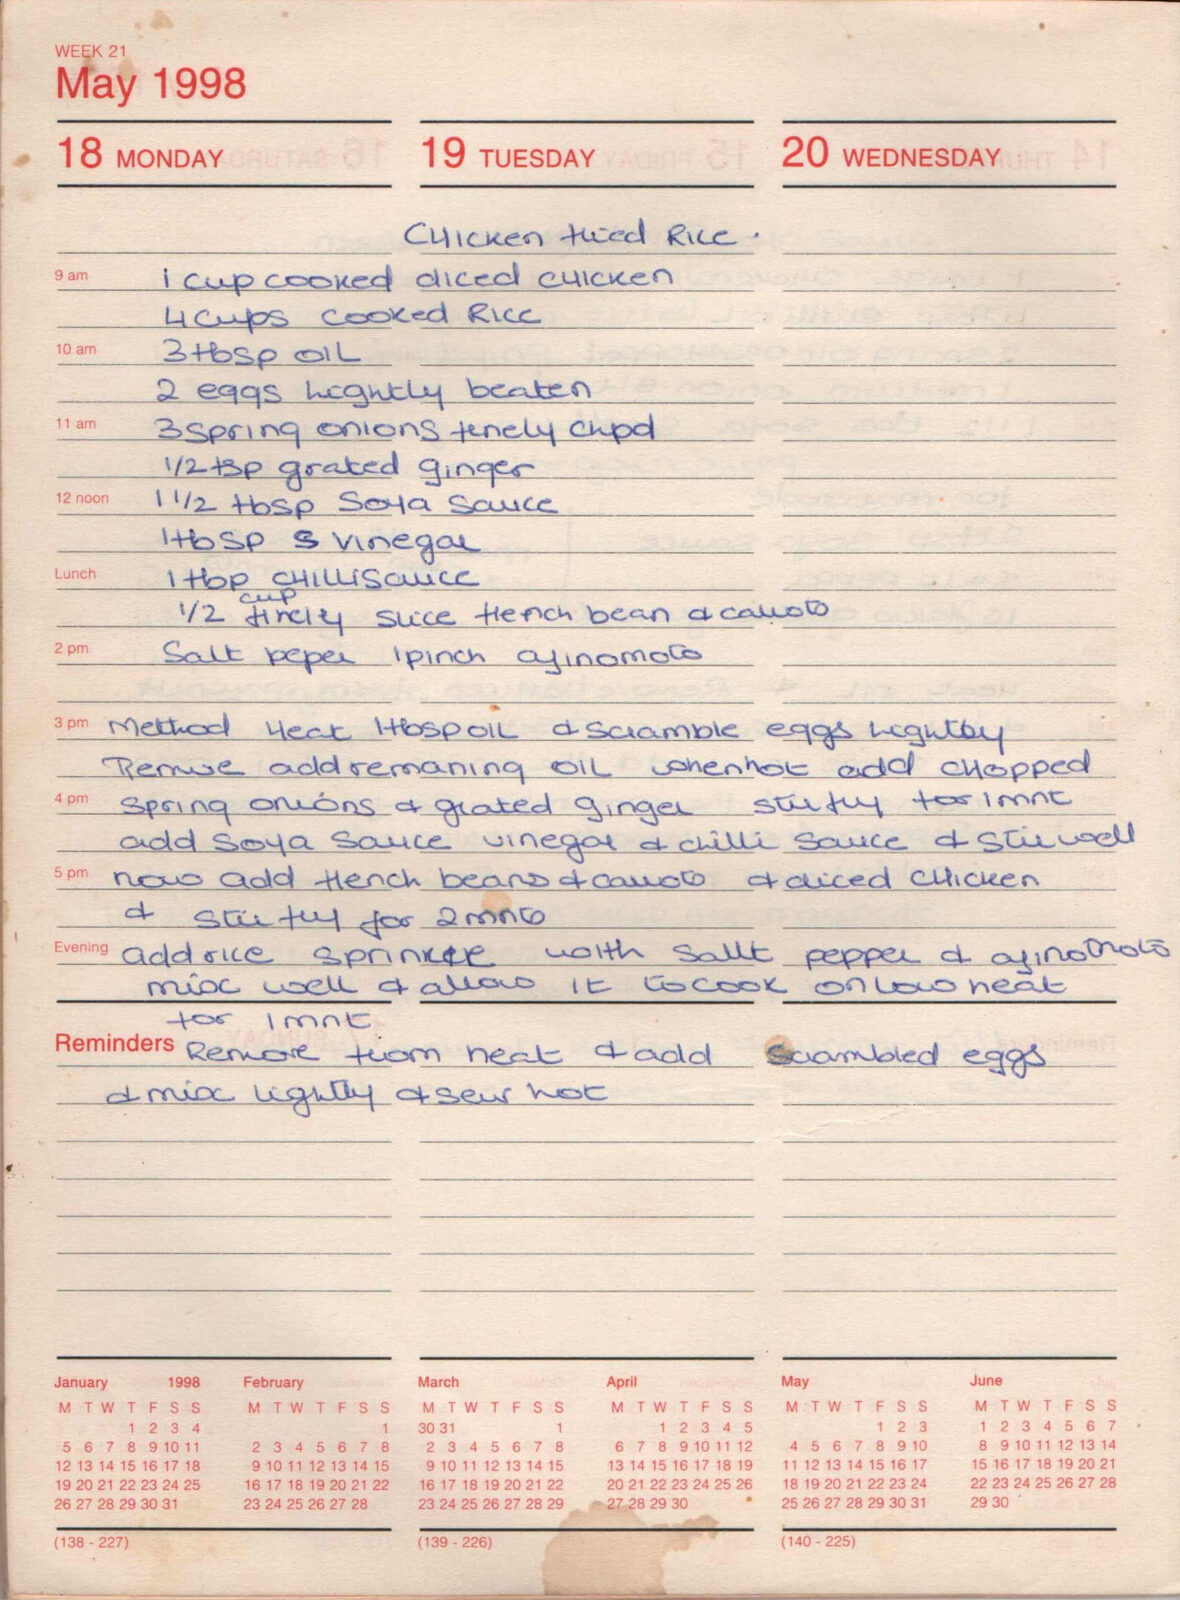 WEEK 21
May 1998
18 MONDAY 19 TUESDAY 20 WEDNESDAY
Chicken fried Rice.
9 am 1 cup cooked diced chicken
4 cups cooked Rice
10 am 3 tbsp oil
2 eggs lightly beaten
11 am 3 spring onions finely chpd
1/2 tsp grated ginger
12 noon 1 1/2 tbsp Soya Sauce
1 tbsp vinegar
Lunch 1 tbp chilli sauce
1/2 cup finely slice french bean & carrots
2 pm Salt peper 1 pinch ajinomoto
3 pm Method Heat 1 tbsp oil & scramble eggs lightly
Remove add remaning oil when hot add chopped
4 pm spring onions & grated ginger stirfry for 1 mnt
add soya sauce vinegar & chilli sauce & stir well
5 pm now add french beans & carrots & diced chicken
& stirfry for 2 mnts
Evening add rice sprinkle with salt pepper & ajinomoto
mix well & allow it to cook on low heat
for 1 mnt
Reminders Remove from heat & add scrambled eggs
& mix lightly & serv hot
January 1998 February March April May June
M T W T F S S M T W T F S S M T W T F S S M T W T F S S M T W T F S S M T W T F S S
1 2 3 4 1 30 31 1 1 2 3 4 5 1 2 3 1 2 3 4 5 6 7
5 6 7 8 9 10 11 2 3 4 5 6 7 8 2 3 4 5 6 7 8 6 7 8 9 10 11 12 4 5 6 7 8 9 10 8 9 10 11 12 13 14
12 13 14 15 16 17 18 9 10 11 12 13 14 15 9 10 11 12 13 14 15 13 14 15 16 17 18 19 11 12 13 14 15 16 17 15 16 17 18 19 20 21
19 20 21 22 23 24 25 16 17 18 19 20 21 22 16 17 18 19 20 21 22 20 21 22 23 24 25 26 18 19 20 21 22 23 24 22 23 24 25 26 27 28
26 27 28 29 30 31 23 24 25 26 27 28 23 24 25 26 27 28 29 27 28 29 30 25 26 27 28 29 30 31 29 30
(138 - 227) (139 - 226) (140 - 225)